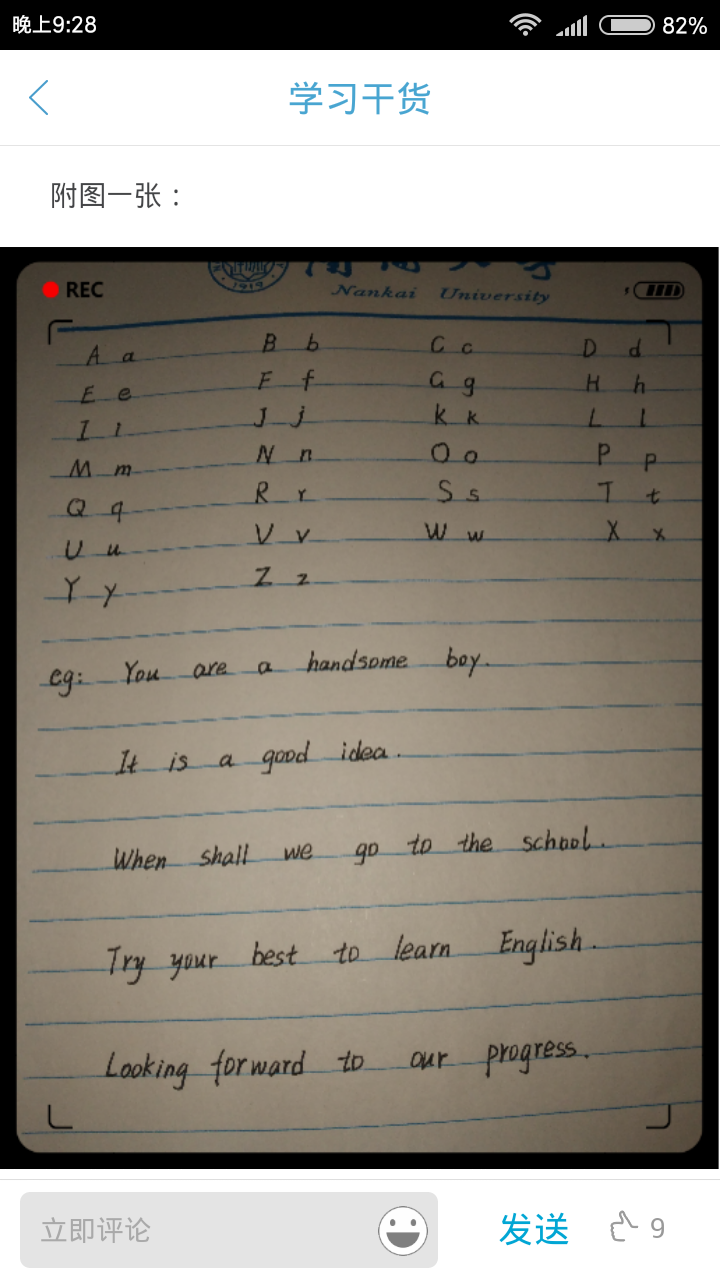 晚上9:28 82%
学习干货
附图一张：
1919
REC
Nankai University
A a B b C c D d
E e F f G g H h
I i J j K k L l
M m N n O o P p
Q q R r S s T t
U u V v W w X x
Y y Z z
eg: You are a handsome boy.
It is a good idea.
When shall we go to the school.
Try your best to learn English.
Looking forward to our progress.
立即评论 发送 9